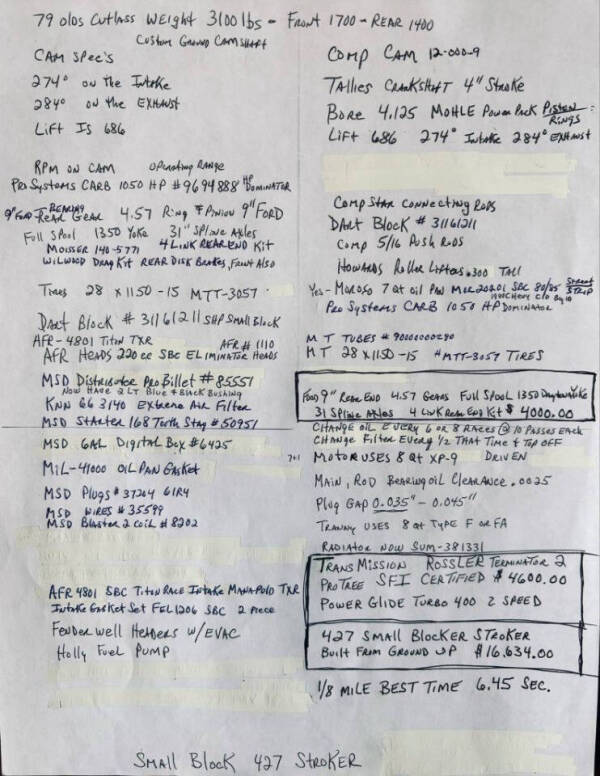 79 olds Cutlass Weight 3100 lbs - Front 1700 - Rear 1400
Custom Ground Camshaft
CAM Spec's
274° on the Intake
284° on the EXHAUST
Lift Is 686
RPM on CAM operating RANGE
Pro Systems CARB 1050 HP #9694888 HP Dominator
9" Ford Rear Gear 4.57 Ring & Pinion 9" FORD
Full Spool 1350 Yoke 31" Spline Axles
Moisser 140-5771 4 LINK REAR END Kit
WILWOOD Drag Kit REAR Disk Brakes, Front Also
Tires 28 x 1150 -15 MTT-3057
Dart Block # 31161211 SHP Small Block
AFR - 4801 Titon TXR AFR # 1110
AFR Heads 220 cc SBC ELIMINATOR Heads
MSD Distributor Pro Billet # 85551
Now Have 2 LT Blue & 1 Black Bushing
KNN 66 3140 Extreme Air Filter
MSD Starter 168 Tooth Stag # 50951
MSD 6AL Digital Box #6425
MIL-41000 OIL PAN Gasket
MSD Plugs # 37204 61R4
MSD Wires # 35599
MSD Blaster 2 Coil # 8202
AFR 4801 SBC Titon Race Intake Manafold TXR
Intake Gasket Set FEL 1206 SBC 2 Piece
Fenderwell Headers w/EVAC
Holly Fuel Pump
Comp Cam 12-000-9
Tallies Crankshaft 4" Stroke
Bore 4.125 MOHLE Power Pack Piston Rings
Lift 686 274° Intake 284° Exhaust
Comp Star Connecting Rods
DART Block # 31161211
Comp 5/16 Push Rods
Howards Roller Lifters .300 TALL
Yes - Moroso 7 qt oil Pan Mor 20201 SBC 80/85 Street Strip
Pro Systems CARB 1050 HP Dominator
M T TUBES # 90000000290
M T 28 x 1150 -15 # MTT-3057 TIRES
Ford 9" Rear End 4.57 Gears Full Spool 1350 Daytona Yoke
31 Spline Axles 4 Link Rear End Kit $ 4000.00
CHANGE OIL EVERY 6 or 8 RACES @ 10 PASSES EACH
CHANGE Filter Every 1/2 THAT Time & Top OFF
7+1 Motor uses 8 qt XP-9 DRIVEN
Main, Rod Bearing oil Clearance .0025
Plug Gap 0.035" - 0.045"
Tranny uses 8 qt Type F or FA
Radiator Now SUM-381331
TransMission Rossler Terminator 2
ProTree SFI Certified $ 4600.00
Power Glide Turbo 400 2 SPEED
427 Small Blocker Stroker
Built From Ground UP $16,634.00
1/8 Mile Best Time 6.45 SEC.
Small Block 427 Stroker